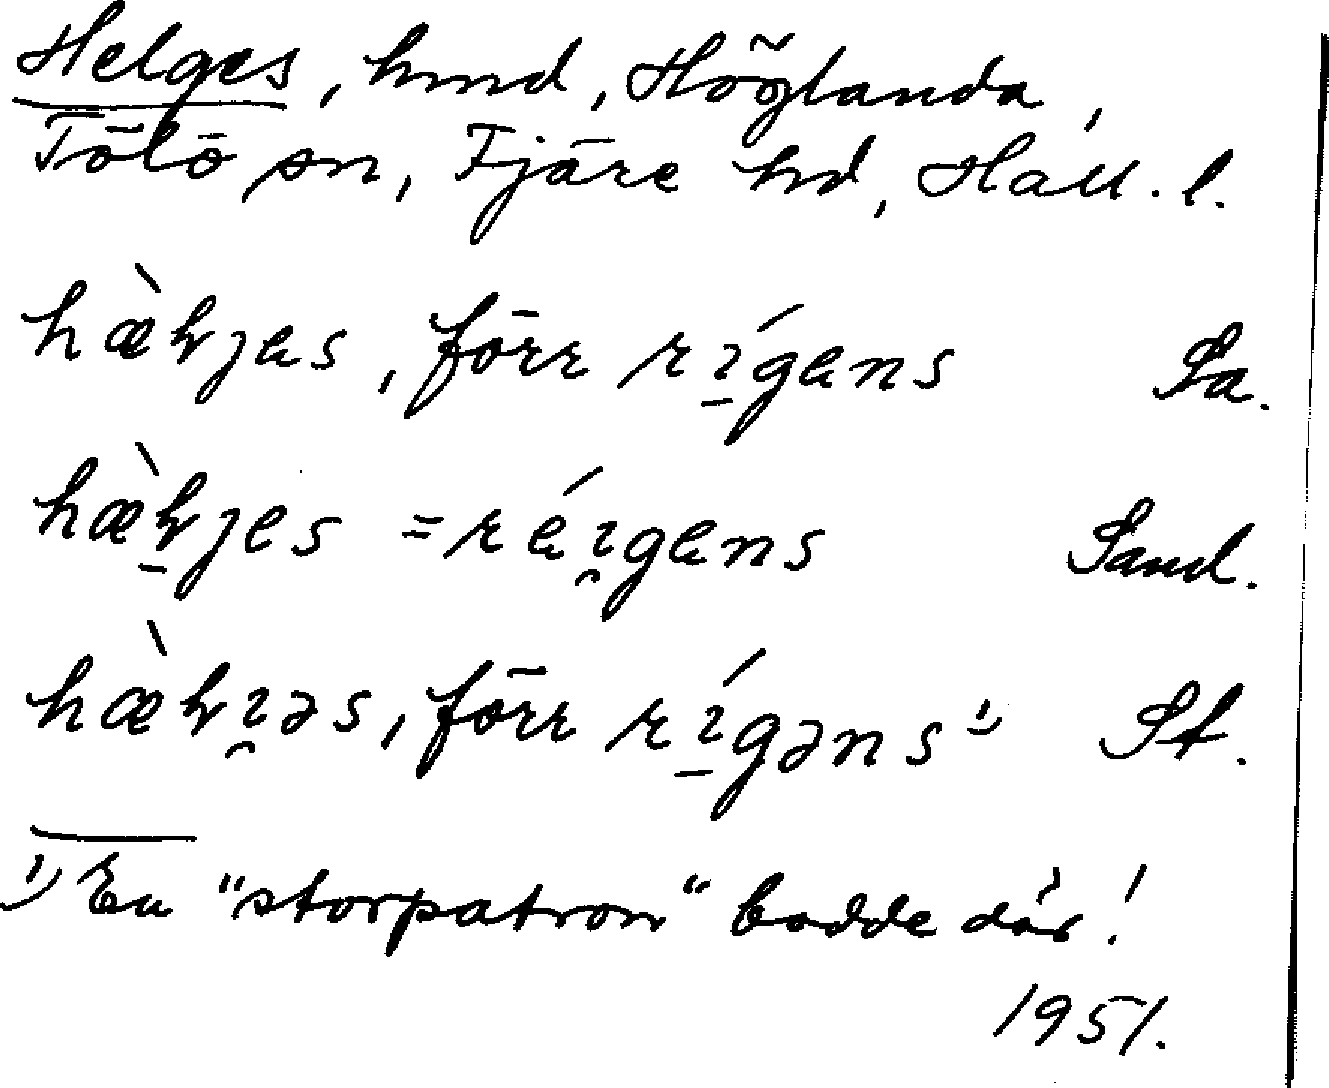 Helges, hmd, Höglanda,
Tölö sn, Fjäre hd, Hall. l.
hæ̀ꝇjes, förr rı́gens Sa.
hæ̀ꝇjes = réıgens Sand.
hæ̀ꝇıəs, förr rı́gəns 1) St.
1) En "storpatron" bodde där!
1951.